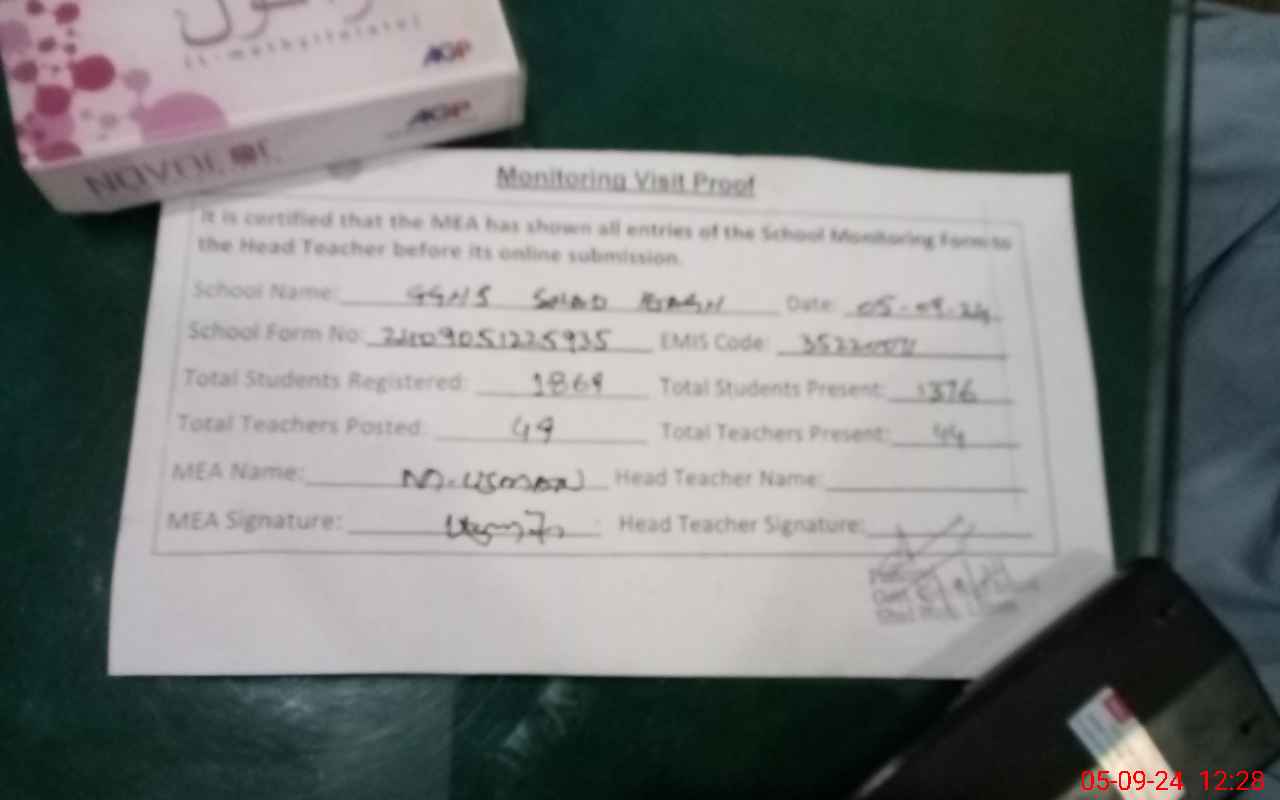 (L-methylfolate)
AGP
AGP
Monitoring Visit Proof
It is certified that the MEA has shown all entries of the School Monitoring Form to
the Head Teacher before its online submission.
School Name: GGHS Date: 05-09-24
School Form No: EMIS Code:
Total Students Registered: 1869 Total Students Present: 1376
Total Teachers Posted: 49 Total Teachers Present: 44
MEA Name: M. USMAN Head Teacher Name:
MEA Signature: Head Teacher Signature:
05-09-24 12:28